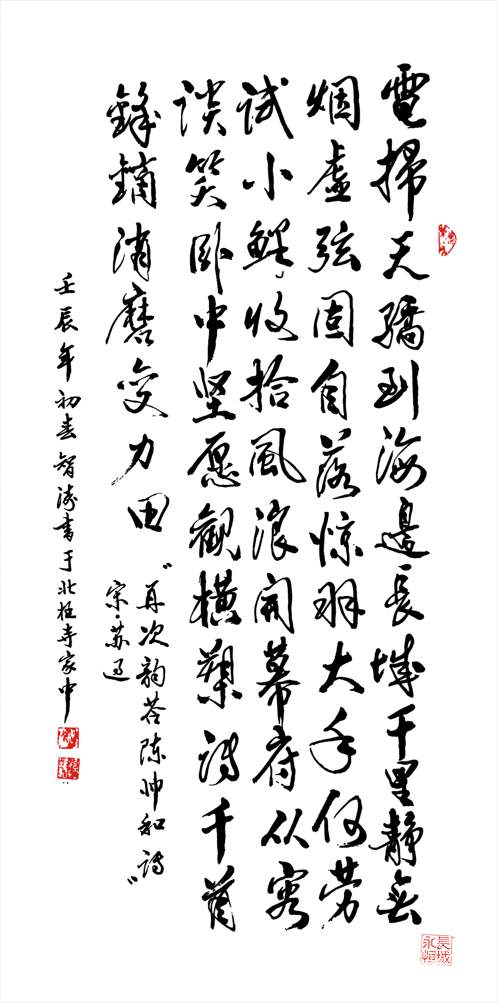 電掃天驕到海邊長城千里靜無
烟虚弦固自落惊羽大手何劳
试小鲜收拾風浪開幕府从容
谈笑卧中坚愿觀横槊诗千首
鋒鏑消磨变力田
“再次韵答陈帅和诗”
宋·苏过
壬辰年初春智涛书于北极寺家中
長城永恒